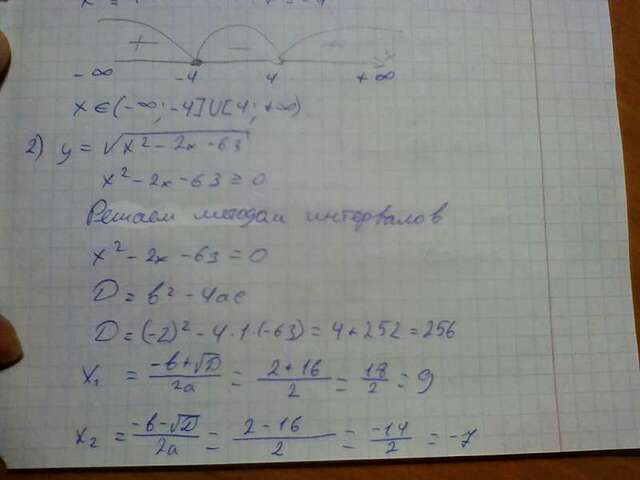 + - +
-∞ -4 4 +∞
x ∈ (-∞; -4] U [4; +∞)
2) y = √x² - 2x - 63
x² - 2x - 63 ≥ 0
Решаем методом интервалов
x² - 2x - 63 = 0
D = b² - 4ac
D = (-2)² - 4·1·(-63) = 4 + 252 = 256
x₁ = (-b+√D)/2a = (2+16)/2 = 18/2 = 9
x₂ = (-b-√D)/2a = (2-16)/2 = -14/2 = -7